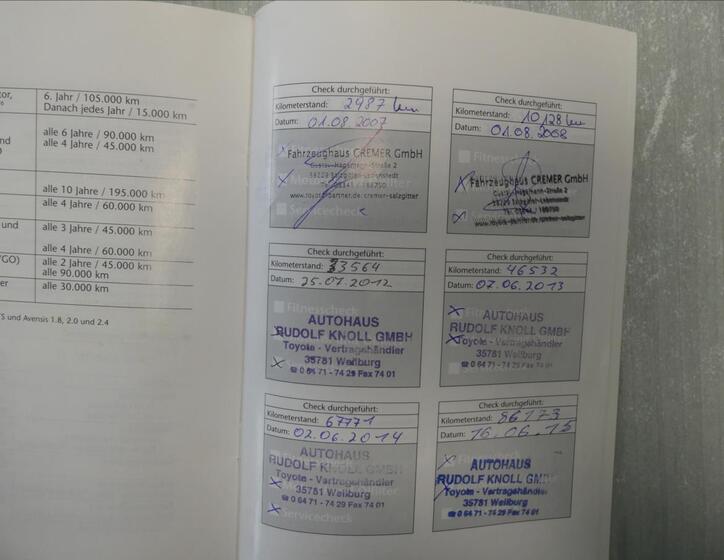 tor,
6. Jahr / 105.000 km
Danach jedes Jahr / 15.000 km
nd
alle 6 Jahre / 90.000 km
alle 4 Jahre / 45.000 km
alle 10 Jahre / 195.000 km
alle 4 Jahre / 60.000 km
und
alle 3 Jahre / 45.000 km
alle 4 Jahre / 60.000 km
/GO)
alle 2 Jahre / 45.000 km
alle 90.000 km
er
alle 30.000 km
S und Avensis 1.8, 2.0 und 2.4
Check durchgeführt:
Kilometerstand: 2987 km
Datum: 01.08 2007
Fahrzeughaus CREMER GmbH
Gustav-Hagemann-Straße 2
38229 Salzgitter-Lebenstedt
www.toyotapartner.de/cremer-salzgitter
Servicecheck
Check durchgeführt:
Kilometerstand: 10128 km
Datum: 01.08 2008
Fitnesscheck
Fahrzeughaus CREMER GmbH
Check durchgeführt:
Kilometerstand: 33564
Datum: 25.07.2012
Fitnesscheck
AUTOHAUS
RUDOLF KNOLL GMBH
Toyota - Vertragshändler
35781 Weilburg
☎ 0 64 71 - 74 29 Fax 74 01
Check durchgeführt:
Kilometerstand: 46532
Datum: 07.06.2013
AUTOHAUS
RUDOLF KNOLL GMBH
Toyota - Vertragshändler
35781 Weilburg
☎ 0 64 71 - 74 29 Fax 74 01
Check durchgeführt:
Kilometerstand: 67771
Datum: 02.06.2014
AUTOHAUS
RUDOLF KNOLL GMBH
Toyota - Vertragshändler
35781 Weilburg
☎ 0 64 71 - 74 29 Fax 74 01
Servicecheck
Check durchgeführt:
Kilometerstand: 86173
Datum: 16.06.15
AUTOHAUS
RUDOLF KNOLL GMBH
Toyota - Vertragshändler
35781 Weilburg
☎ 0 64 71 - 74 29 Fax 74 01